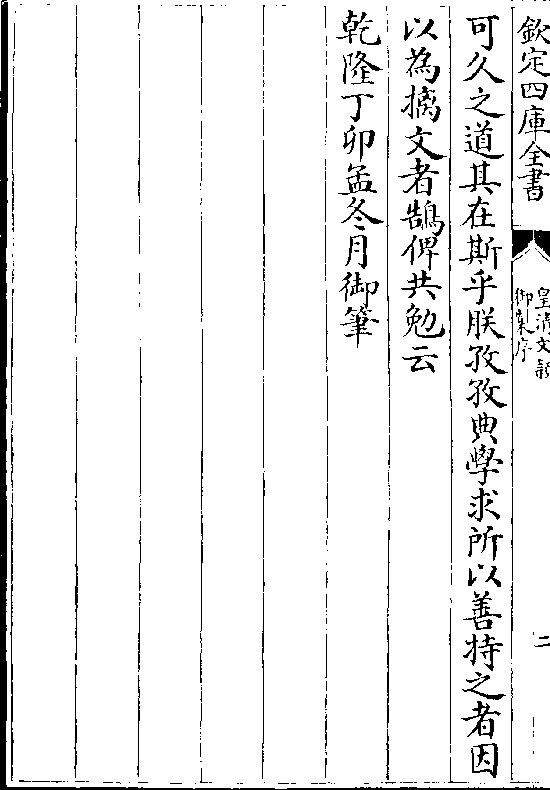 欽定四庫全書
皇清文頴
御製序
二
可久之道其在斯乎朕孜孜典學求所以善持之者因
以為摛文者鵠俾共勉云
乾隆丁卯孟冬月御筆